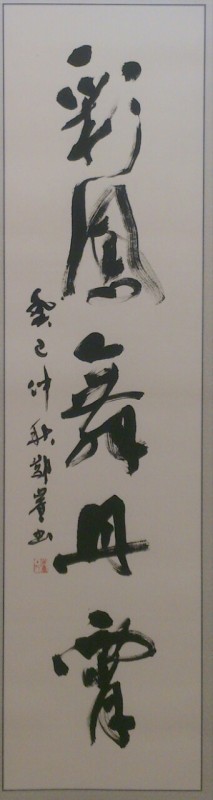 彩鳳舞丹霄
癸巳仲秋鄭崖书